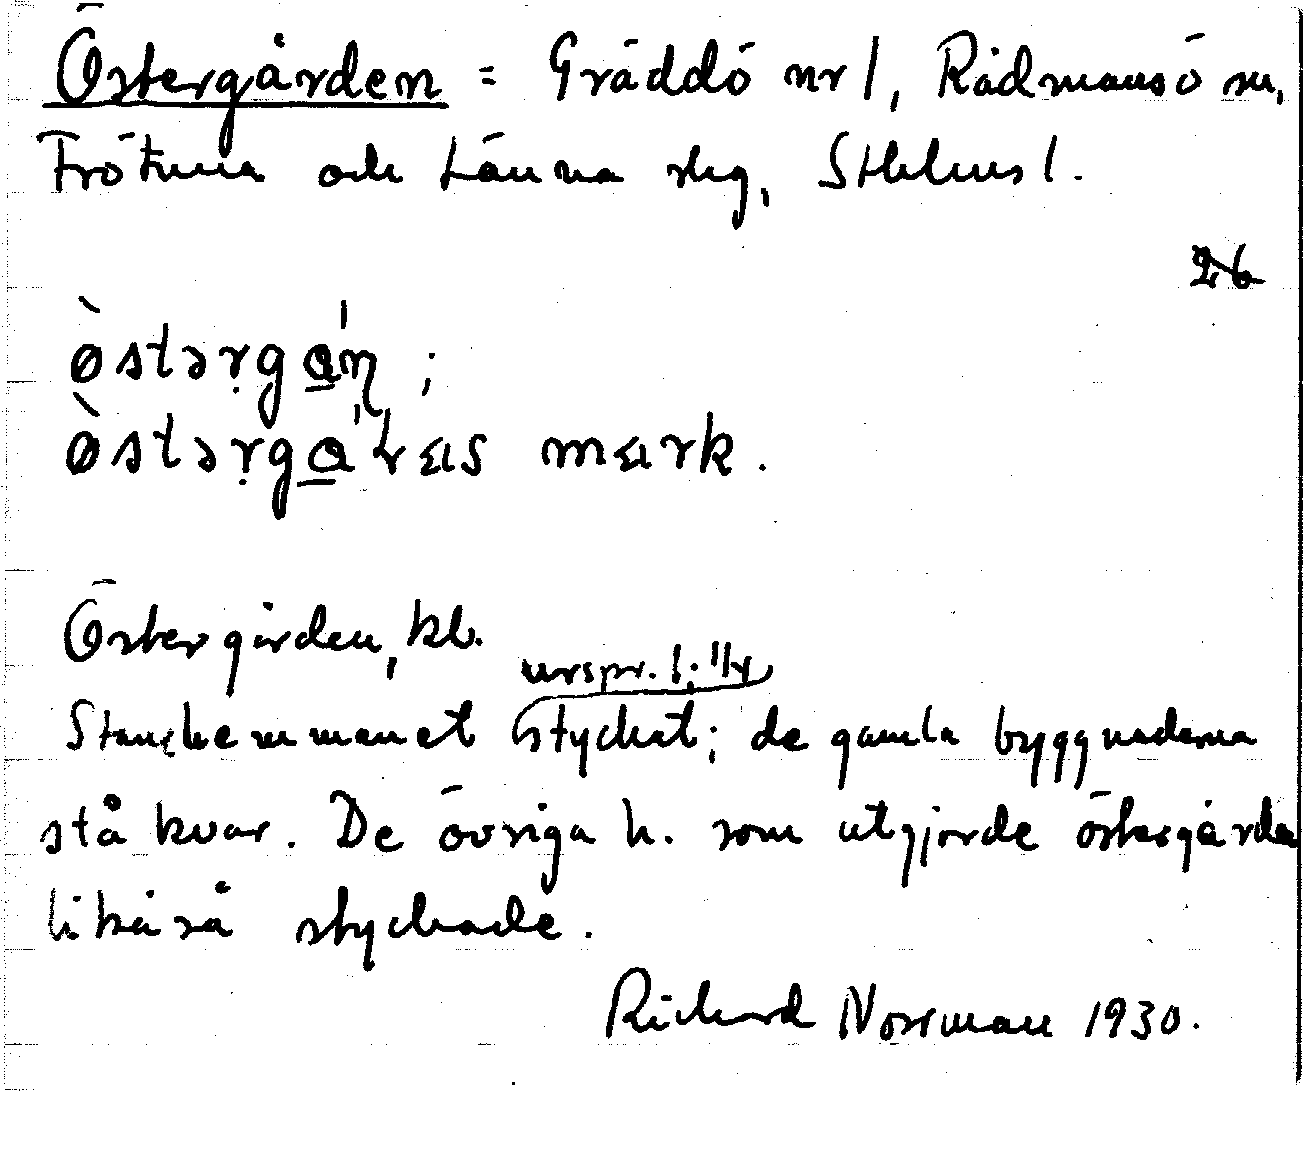 Östergården = Gräddö nr 1, Rådmansö sn,
Frötuna och Länna slg, Sthlms l.
26
ø̀stərgɑ́ṇ ;
ø̀stərgɑ́ɽas mark.
Östergården, kl.
urspr. 1; 1/4
Stamhemmanet styckat; de gamla byggnaderna
stå kvar. De övriga h. som utgjorde östergårda
likaså styckade.
Richard Norrman 1930.